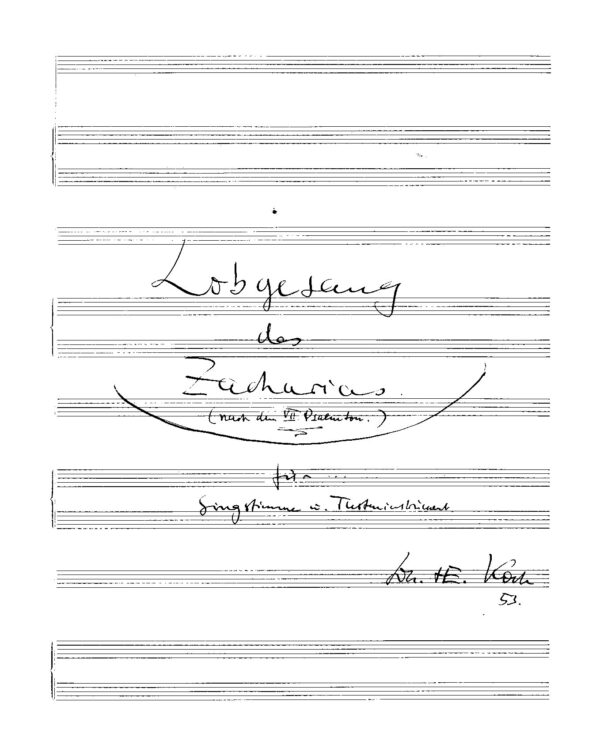 Lobgesang
des
Zacharias.
(nach dem VII Psalmton.)
für ...
Singstimme u. Tasteninstrument.
Joh. H.E. Koch
53.